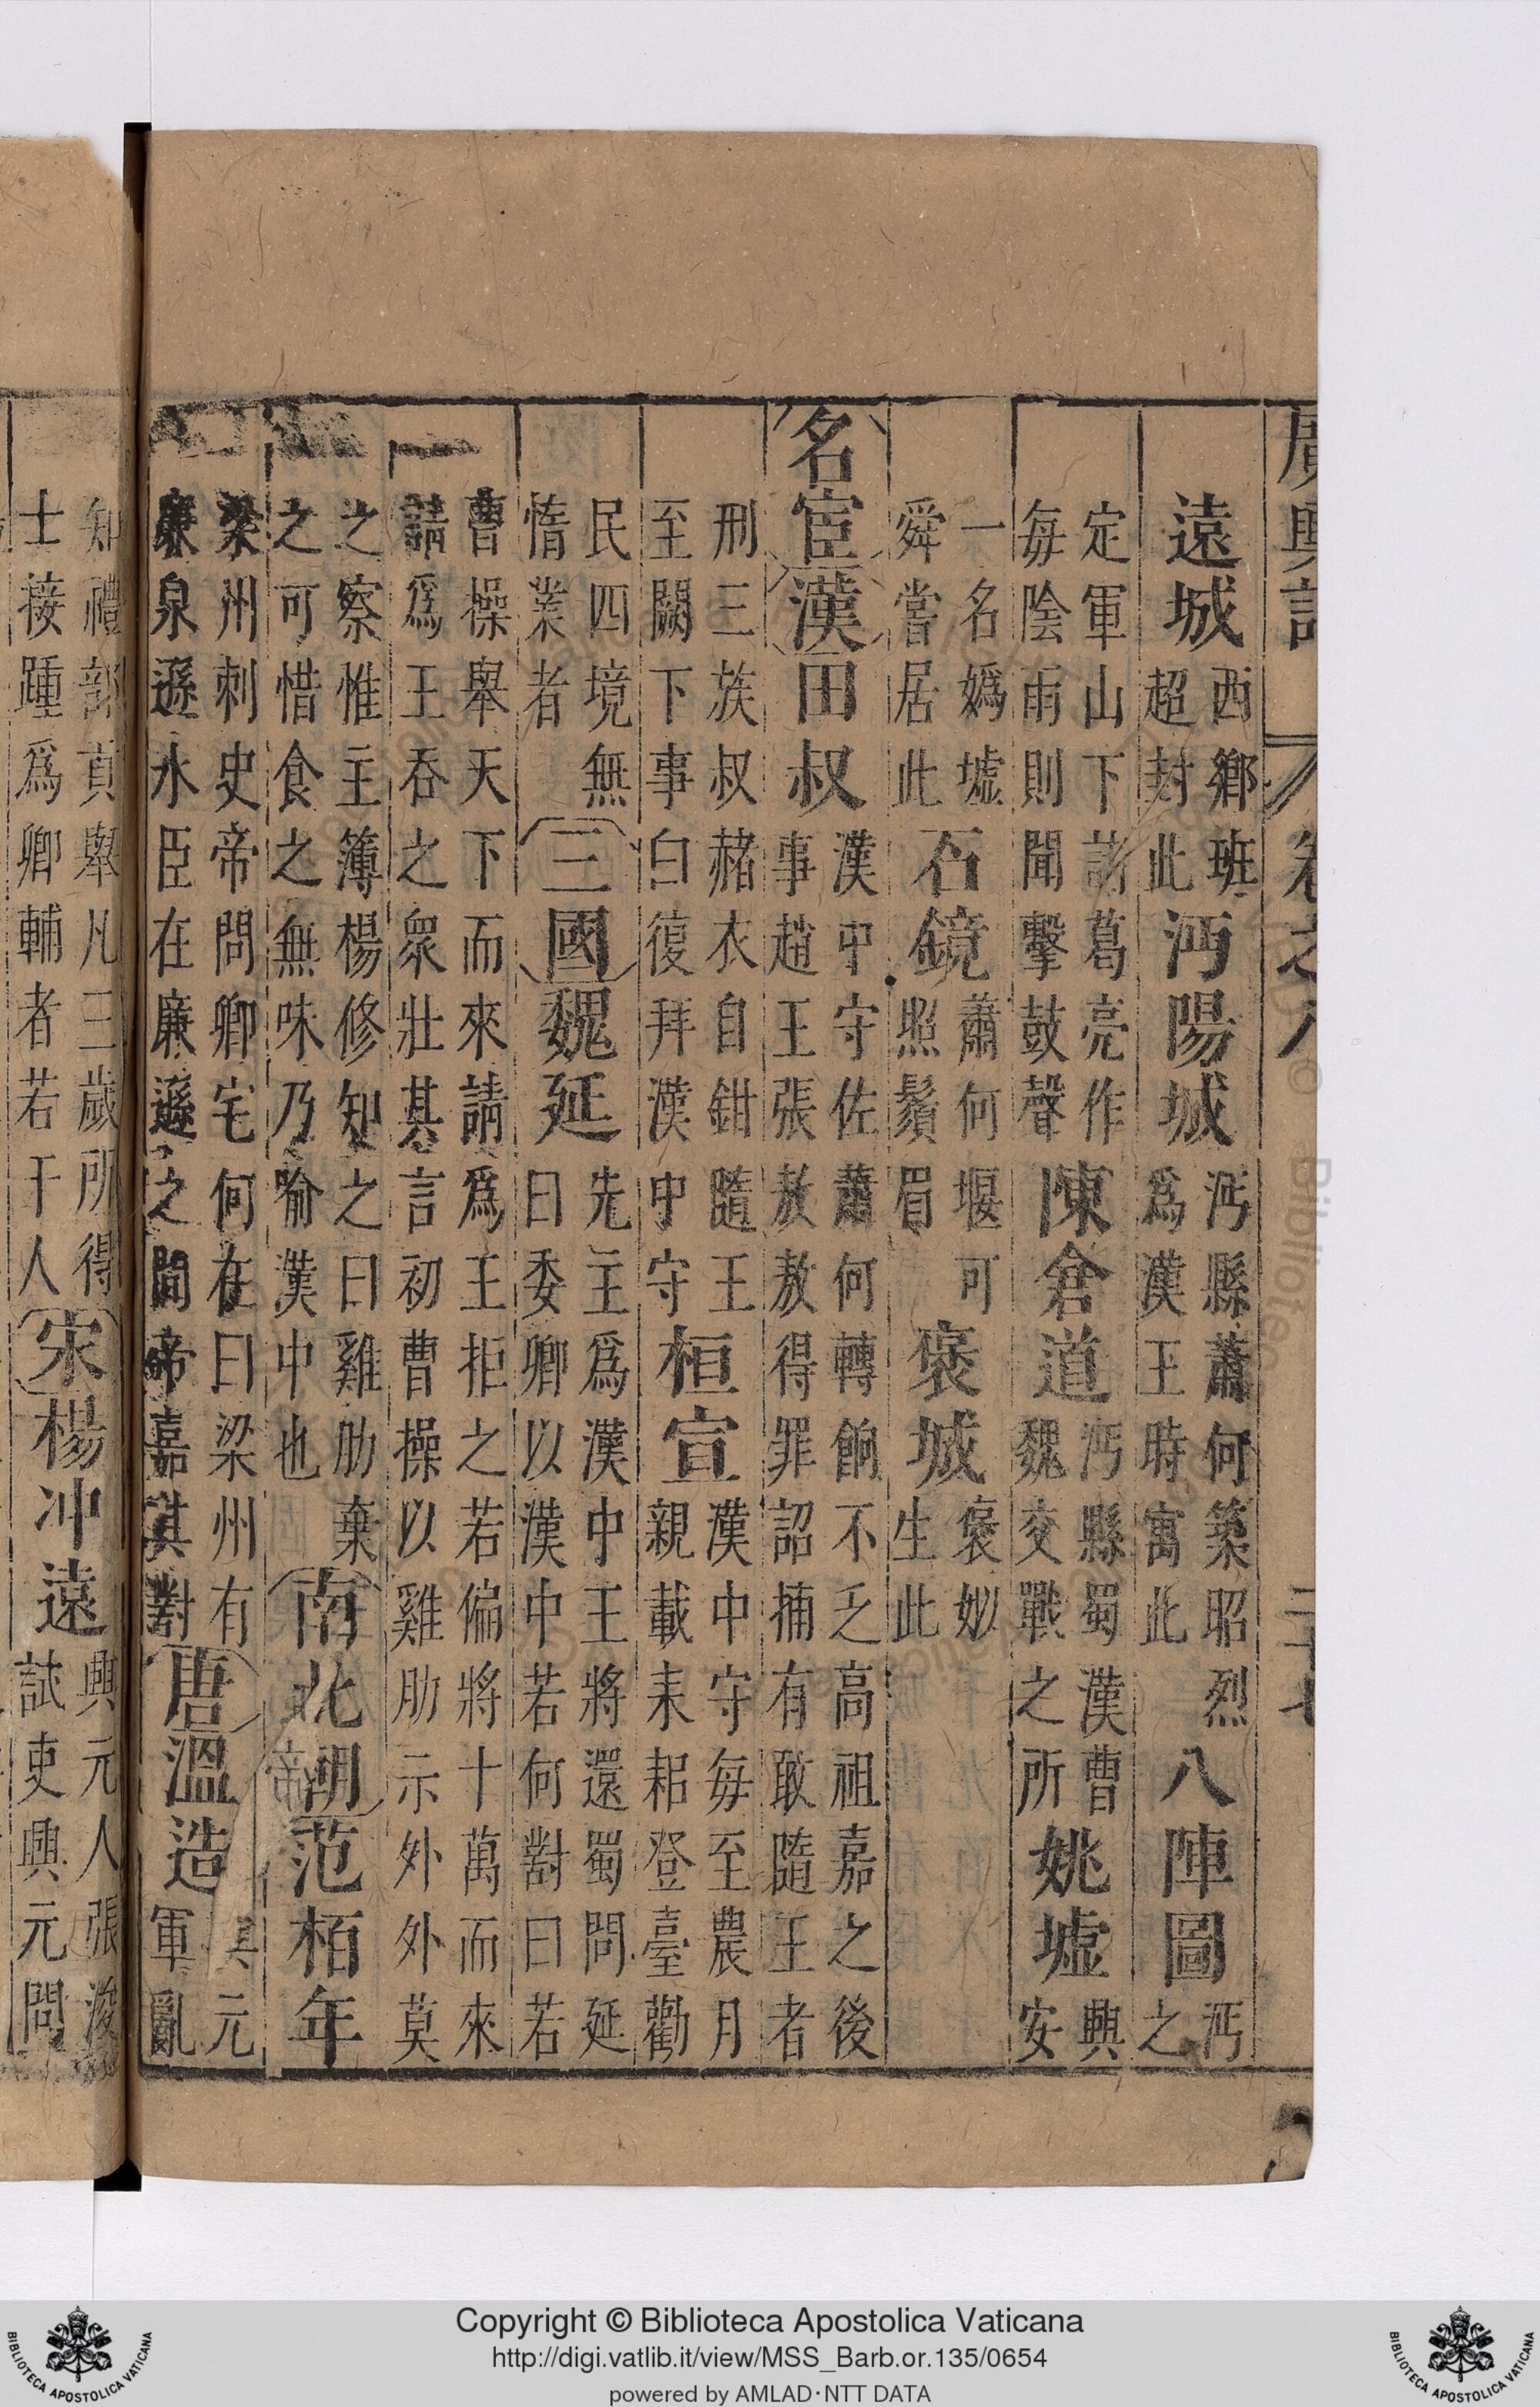 廣輿記 卷之八
遠城西鄉班超封此沔陽城沔縣蕭何築昭烈爲漢王時寓此八陣圖沔之
定軍山下諸葛亮作每陰雨則聞擊鼓聲陳倉道沔縣蜀漢曹魏交戰之所姚墟興安
一名嬀墟舜嘗居此石鏡蕭何堰可照鬚眉褒城褒姒生此
名宦漢田叔漢中守佐蕭何轉餉不乏高祖嘉之後事趙王張敖敖得罪詔捕有敢隨王者
刑三族叔赭衣自鉗隨王至闕下事白復拜漢中守桓宣漢中守每至農月親載耒耜登臺勸
民四境無惰業者三國魏延先主爲漢中王將還蜀問延曰委卿以漢中若何對曰若
曹操舉天下而來請爲王拒之若偏將十萬而來請爲王吞之衆壯其言初曹操以雞肋示外外莫
之察惟主簿楊修知之曰雞肋棄之可惜食之無味乃喻漢中也南北朝范栢年
梁州刺史帝問卿宅何在曰梁州有廉泉遜水臣在廉遜之間帝嘉其對唐溫造興元軍亂
知禮部貢舉凡三歲所得士接踵爲卿輔者若干人宋楊冲遠興元人張浚試吏興元問
Copyright © Biblioteca Apostolica Vaticana
http://digi.vatlib.it/view/MSS_Barb.or.135/0654
powered by AMLAD·NTT DATA
BIBLIOTECA APOSTOLICA VATICANA
BIBLIOTECA APOSTOLICA VATICANA